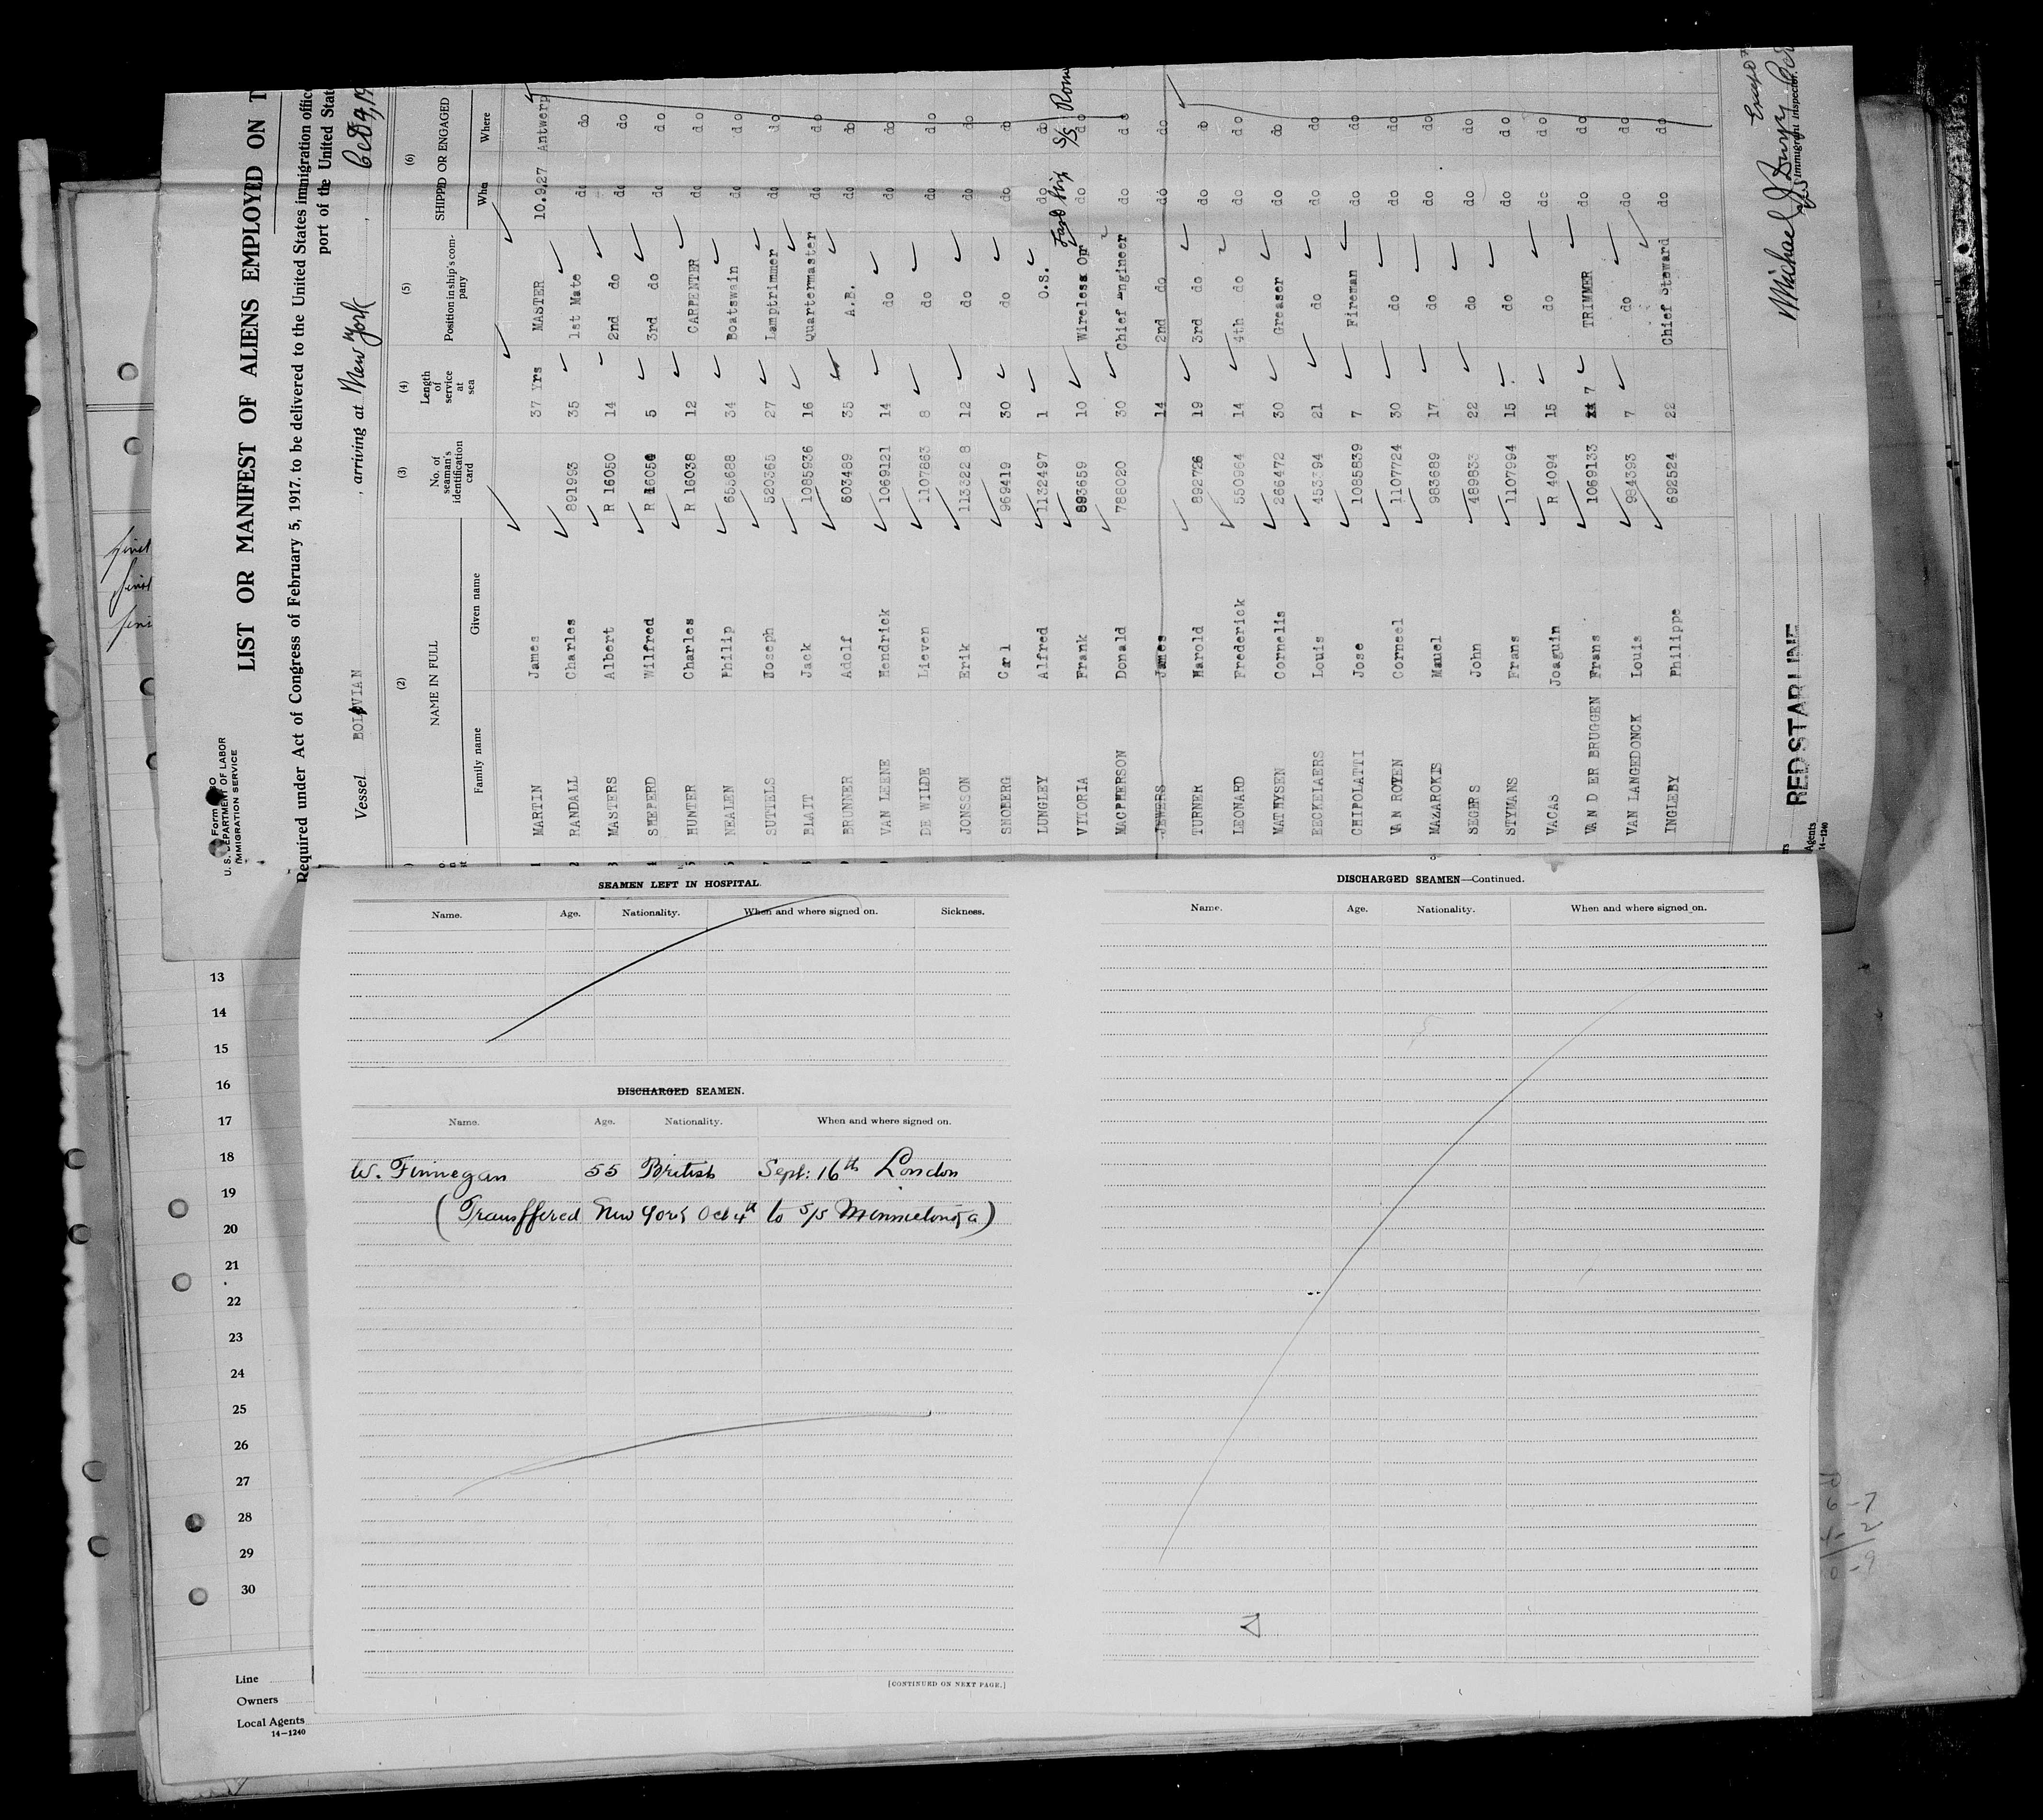 Form 680
U. S. DEPARTMENT OF LABOR
IMMIGRATION SERVICE
LIST OR MANIFEST OF ALIENS EMPLOYED ON T
Required under Act of Congress of February 5, 1917, to be delivered to the United States immigration offic
port of the United Stat
Vessel BOLIVIAN , arriving at New York , Oct 9, 19
(2) (3) (4) (5) (6)
NAME IN FULL No. of seaman's identification card Length of service at sea Position in ship's company SHIPPED OR ENGAGED
Family name Given name When Where
1 MARTIN James 37 Yrs MASTER 10.9.27 Antwerp
2 RANDALL Charles 891993 35 1st Mate do do
3 MASTERS Albert R 16050 14 2nd do do do
4 SHEPERD Wilfred R 16054 5 3rd do do do
5 HUNTER Charles R 16038 12 CARPENTER do do
NEALEN Philip 655688 34 Boatswain do do
SUTTELS Joseph 520365 27 Lamptrimmer do do
BLAIT Jack 1085936 16 Quartermaster do do
BRUNNER Adolf 603489 35 A.B. do do
VAN LEENE Hendrick 1069121 14 do do do
DE WILDE Lieven 1107863 8 do do do
JONSSON Erik 113322 8 12 do do do
SNOBERG Carl 969419 30 do do do
LUNGLEY Alfred 1132497 1 O.S. do do
VITORIA Frank 893659 10 Wireless Op do do
MACPHERSON Donald 788020 30 Chief Engineer do do
JEWERS James 14 2nd do do do
TURNER Harold 892726 19 3rd do do do
LEONARD Frederick 550964 14 4th do do do
MATHYSEN Cornelis 266472 30 Greaser do do
EECKELAERS Louis 453394 21 do do do
CHIPOLATTI Jose 1085839 7 Fireman do do
VAN ROYEN Corneel 1107724 30 do do do
MAZAROKIS Mauel 983689 17 do do do
SEGERS John 489833 22 do do do
STYMANS Frans 1107994 15 do do do
VACAS Joaguin R 4094 15 do do do
VAN D ER BRUGGEN Frans 1069133 7 TRIMMER do do
VAN LANGEDONCK Louis 984393 7 do do do
INGLEBY Philippe 692524 22 Chief Steward do do
RED STAR LINE
Michael J Dwyer
Immigrant inspector.
Agents
14-1240
SEAMEN LEFT IN HOSPITAL.
Name. Age. Nationality. When and where signed on. Sickness.
DISCHARGED SEAMEN.
Name. Age. Nationality. When and where signed on.
W. Finnegan 55 British Sept: 16th London
(Transffered New York Oct 4th to S/S Minnetonka)
[CONTINUED ON NEXT PAGE.]
DISCHARGED SEAMEN—Continued.
Name. Age. Nationality. When and where signed on.
13
14
15
16
17
18
19
20
21
22
23
24
25
26
27
28
29
30
Line
Owners
Local Agents
14-1240